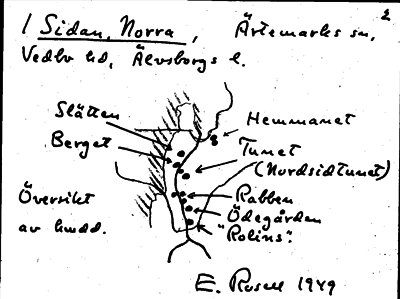 2
/ Sidan, Norra, Ärtemarks sn,
Vedbo hd, Älvsborgs l.
Slätten
Berget
Hemmanet
Tunet
(Nordsidtunet)
Översikt
av huvud.
Rabben
Ödegården
"Rolins".
E. Rosell 1949